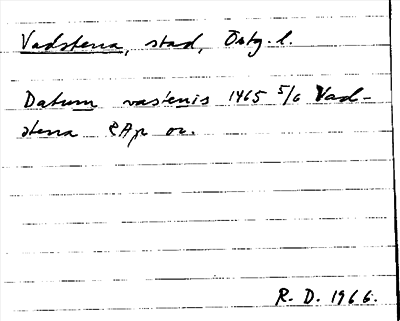 Vadstena, stad, Östg. l.
Datum vastenis 1465 5/6 Vad-
stena RAp or.
R. D. 1966.